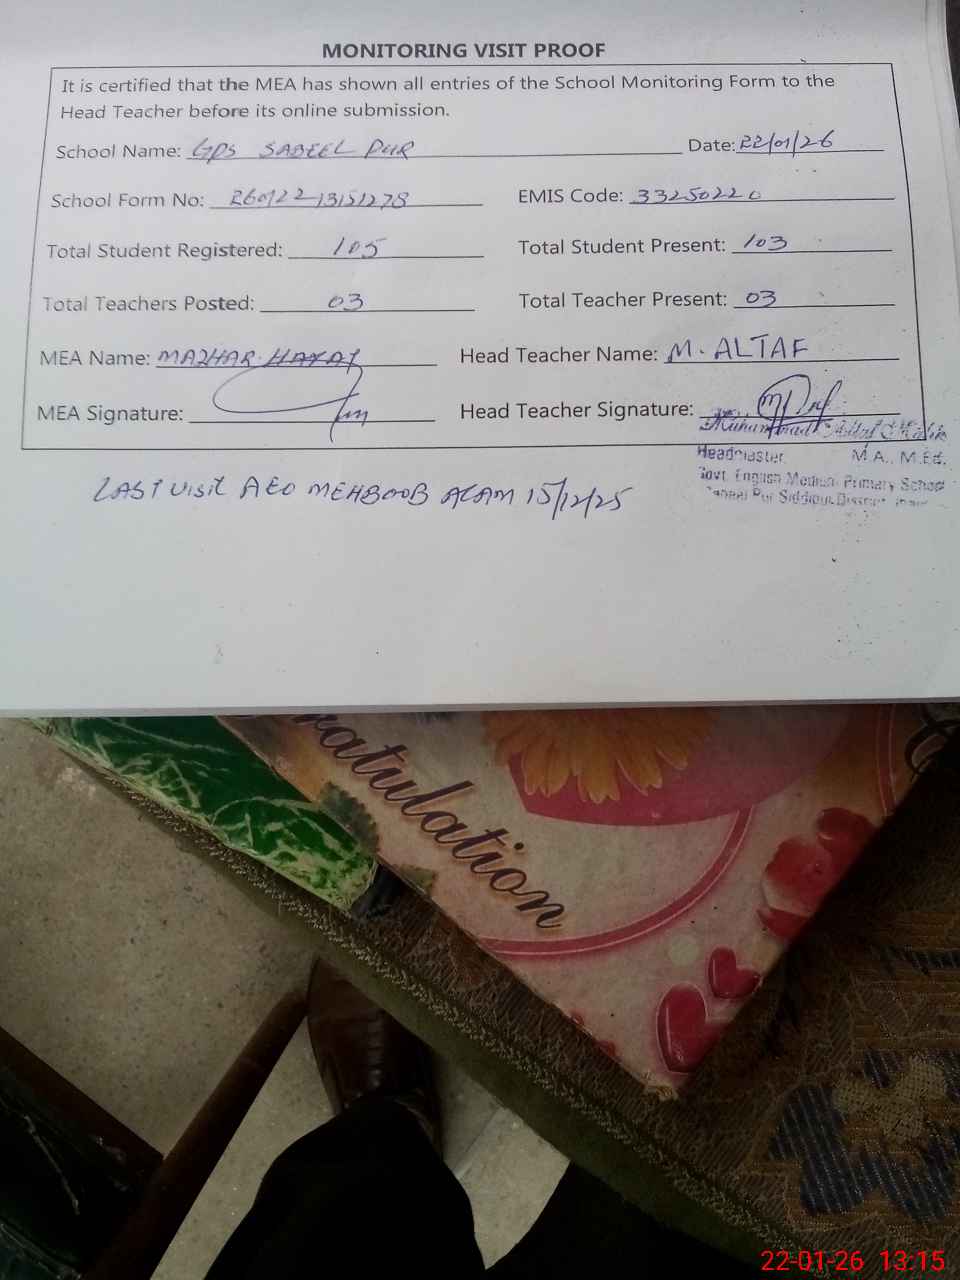 MONITORING VISIT PROOF
It is certified that the MEA has shown all entries of the School Monitoring Form to the
Head Teacher before its online submission.
School Name: GPS SABEEL PUR Date: 22/01/26
School Form No: 260122-13151278 EMIS Code: 33250220
Total Student Registered: 105 Total Student Present: 103
Total Teachers Posted: 03 Total Teacher Present: 03
MEA Name: MAZHAR HAYAT Head Teacher Name: M. ALTAF
MEA Signature: Head Teacher Signature:
Muhammad Altaf
Headmaster M.A., M.Ed.
Govt. English Medium Primary School
Pur
LAST VISIT AEO MEHBOOB ALAM 15/12/25
ratulation
22-01-26 13:15